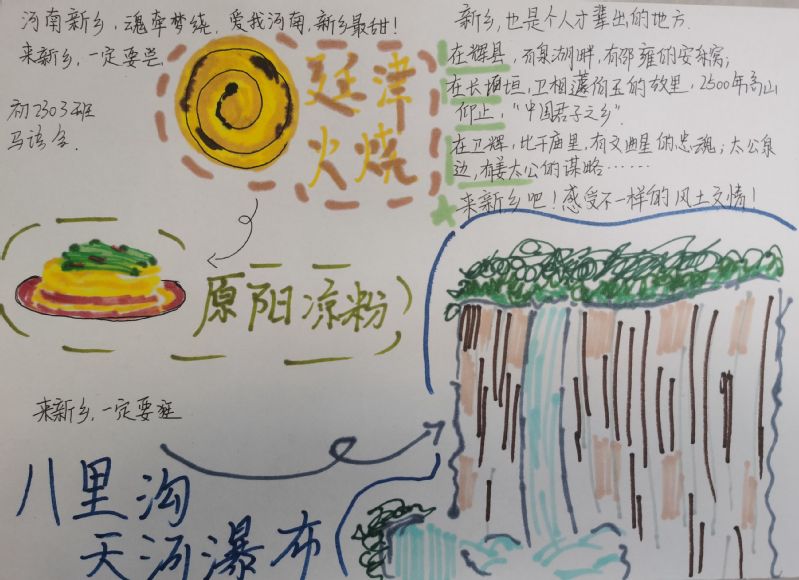 河南新乡，魂牵梦绕，爱我河南，新乡最甜！
来新乡，一定要尝
初2303班
廷津
火烧
原阳凉粉
来新乡，一定要逛
八里沟
天河瀑布
新乡，也是个人才辈出的地方.
在辉县，百泉湖畔，有邵雍的安乐窝；
在长垣，卫相蘧伯玉的故里，2500年高山
仰止，“中国君子之乡”.
在卫辉，比干庙里，有文曲星的忠魂；太公泉
边，有姜太公的谋略……
来新乡吧！感受不一样的风土文情！